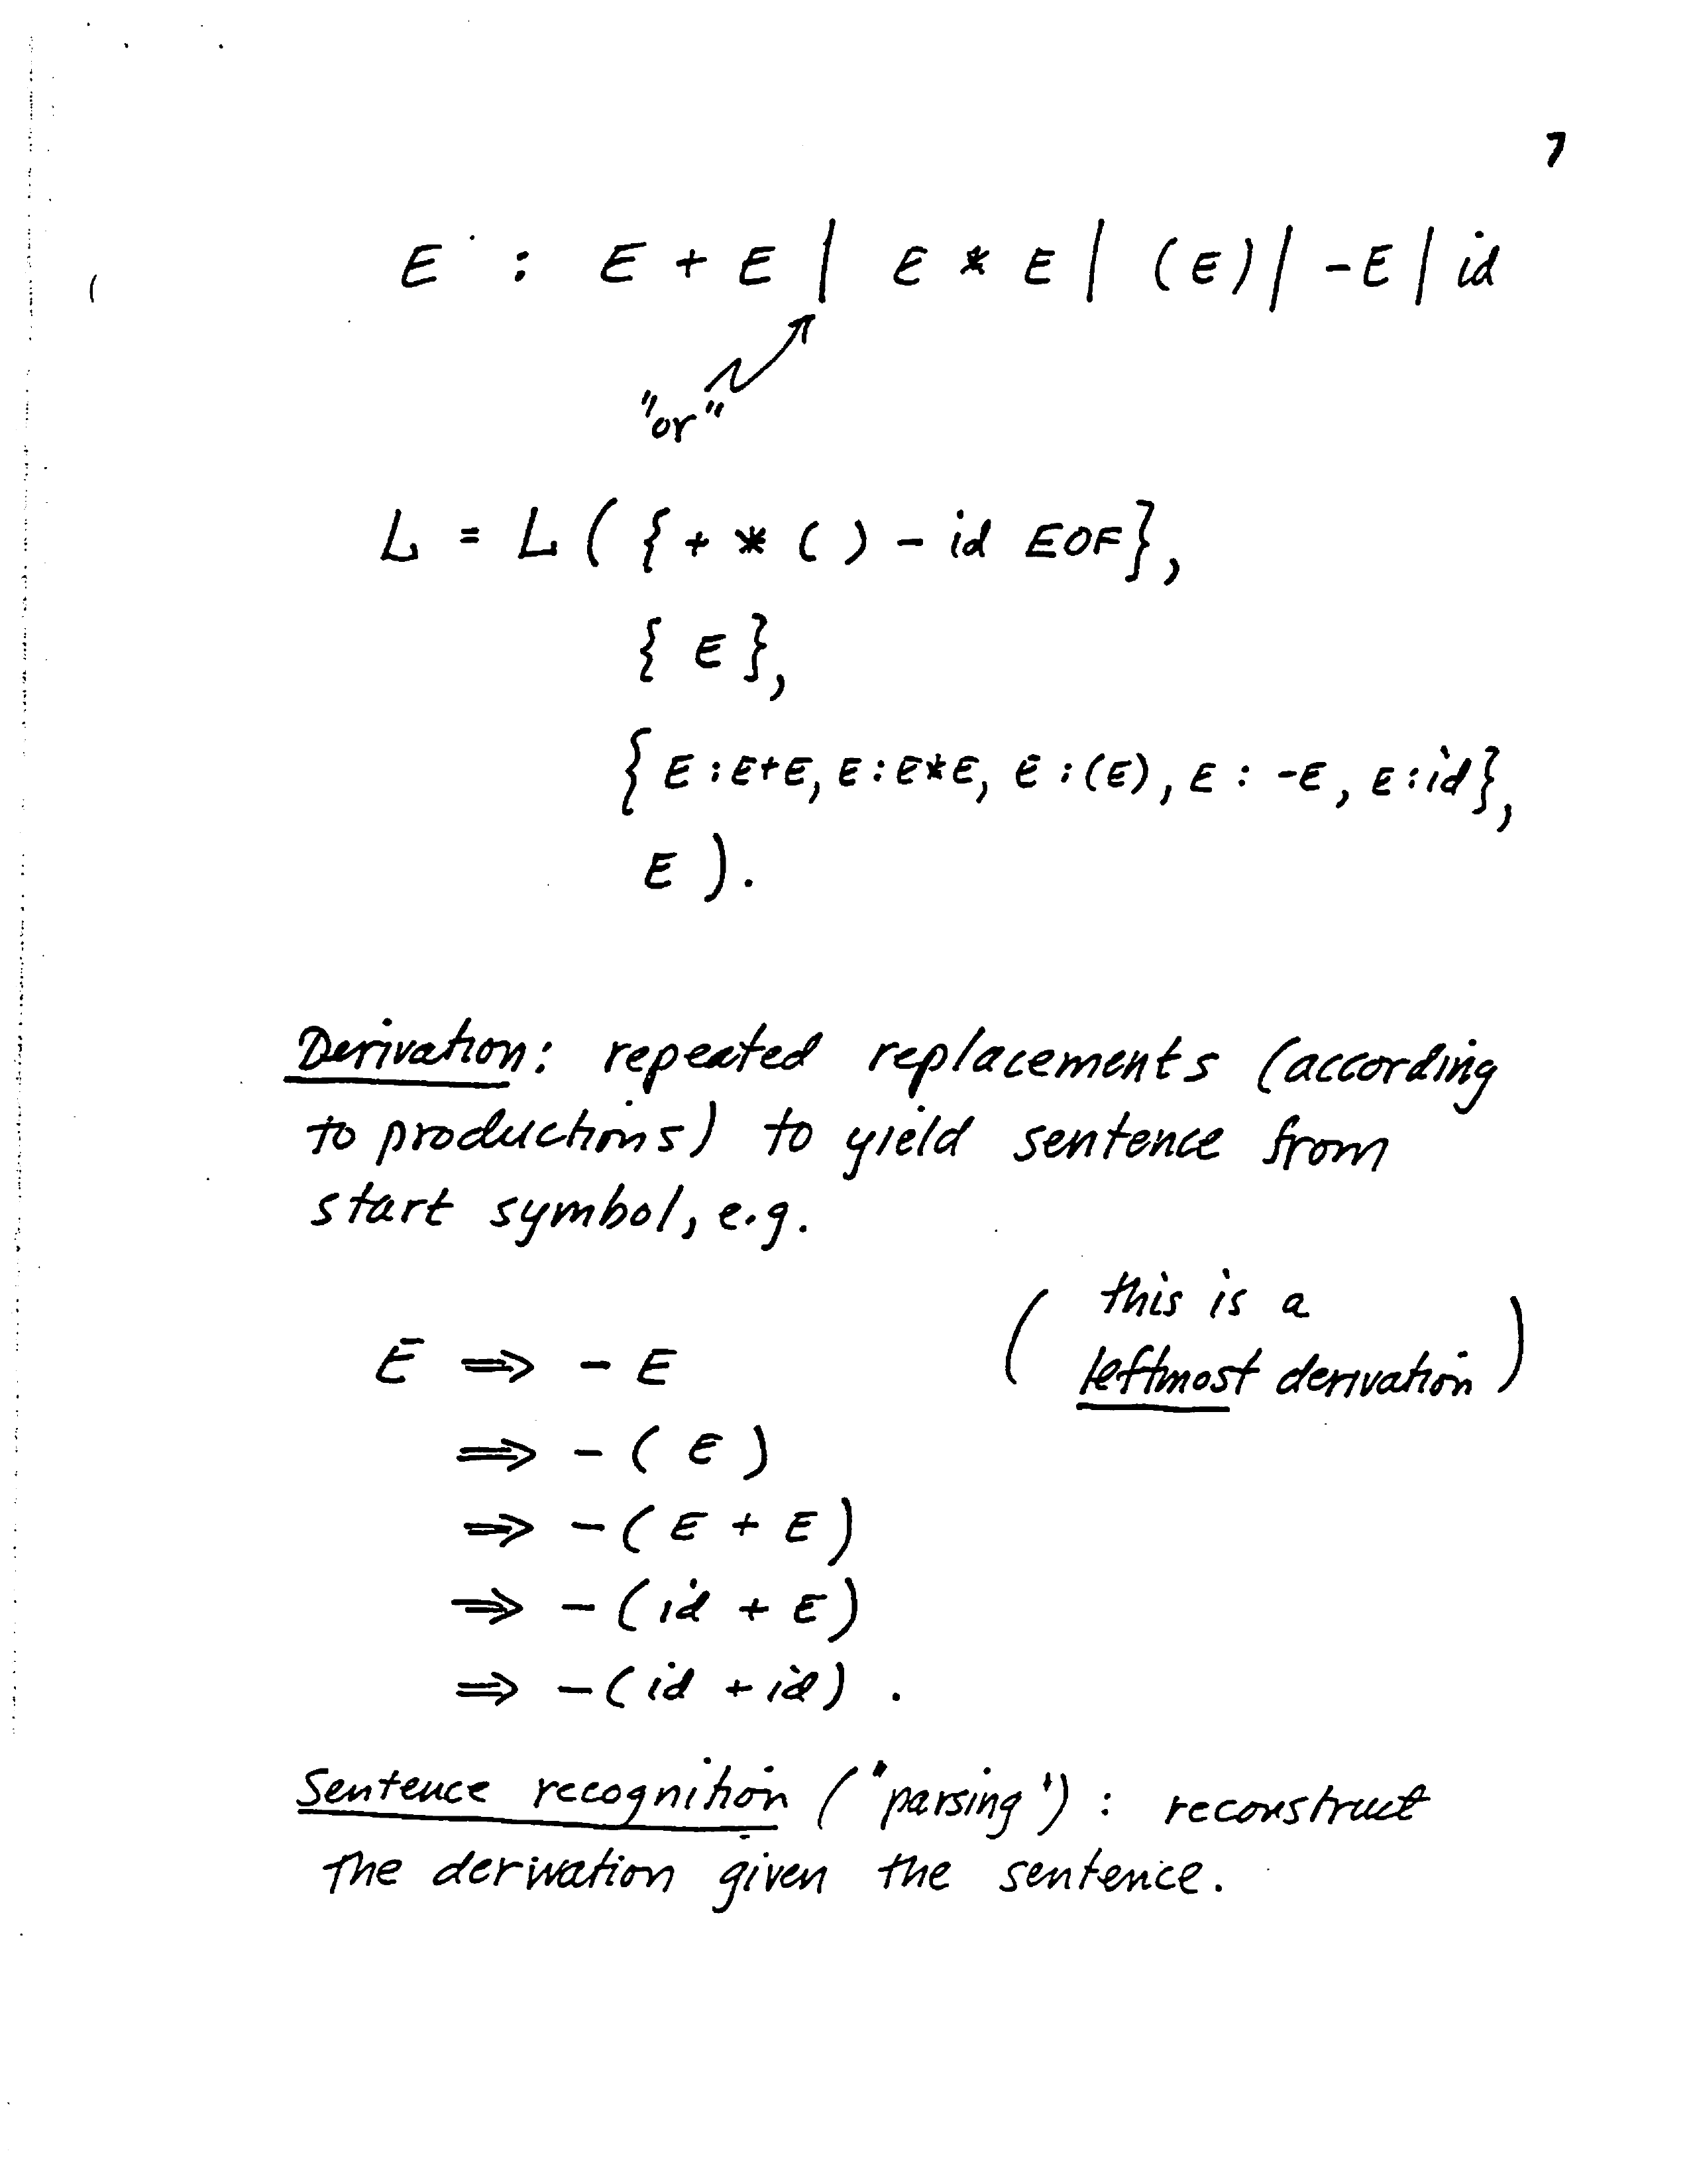 7
E : E + E | E * E | (E) | -E | id
"or"
L = L ( { + * ( ) - id EOF },
{ E },
{ E : E+E, E : E*E, E : (E), E : -E, E : id },
E ).
Derivation: repeated replacements (according
to productions) to yield sentence from
start symbol, e.g.
( this is a
leftmost derivation )
E ⇒ - E
⇒ - ( E )
⇒ - ( E + E )
⇒ - ( id + E )
⇒ - ( id + id ) .
Sentence recognition ("parsing") : reconstruct
the derivation given the sentence.